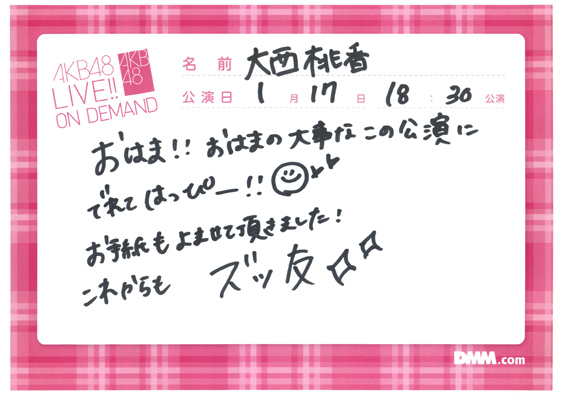 AKB48
LIVE!!
ON DEMAND
AKB
48
名前 大西桃香
公演日 1月17日 18:30公演
おはま!! おはまの大事なこの公演に
でれてはっぴー!!
お手紙もよませて頂きました!
これからも ズッ友
DMM.com